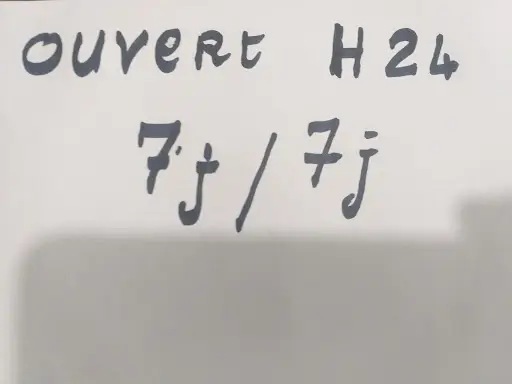 OUVERT H24
7j / 7j